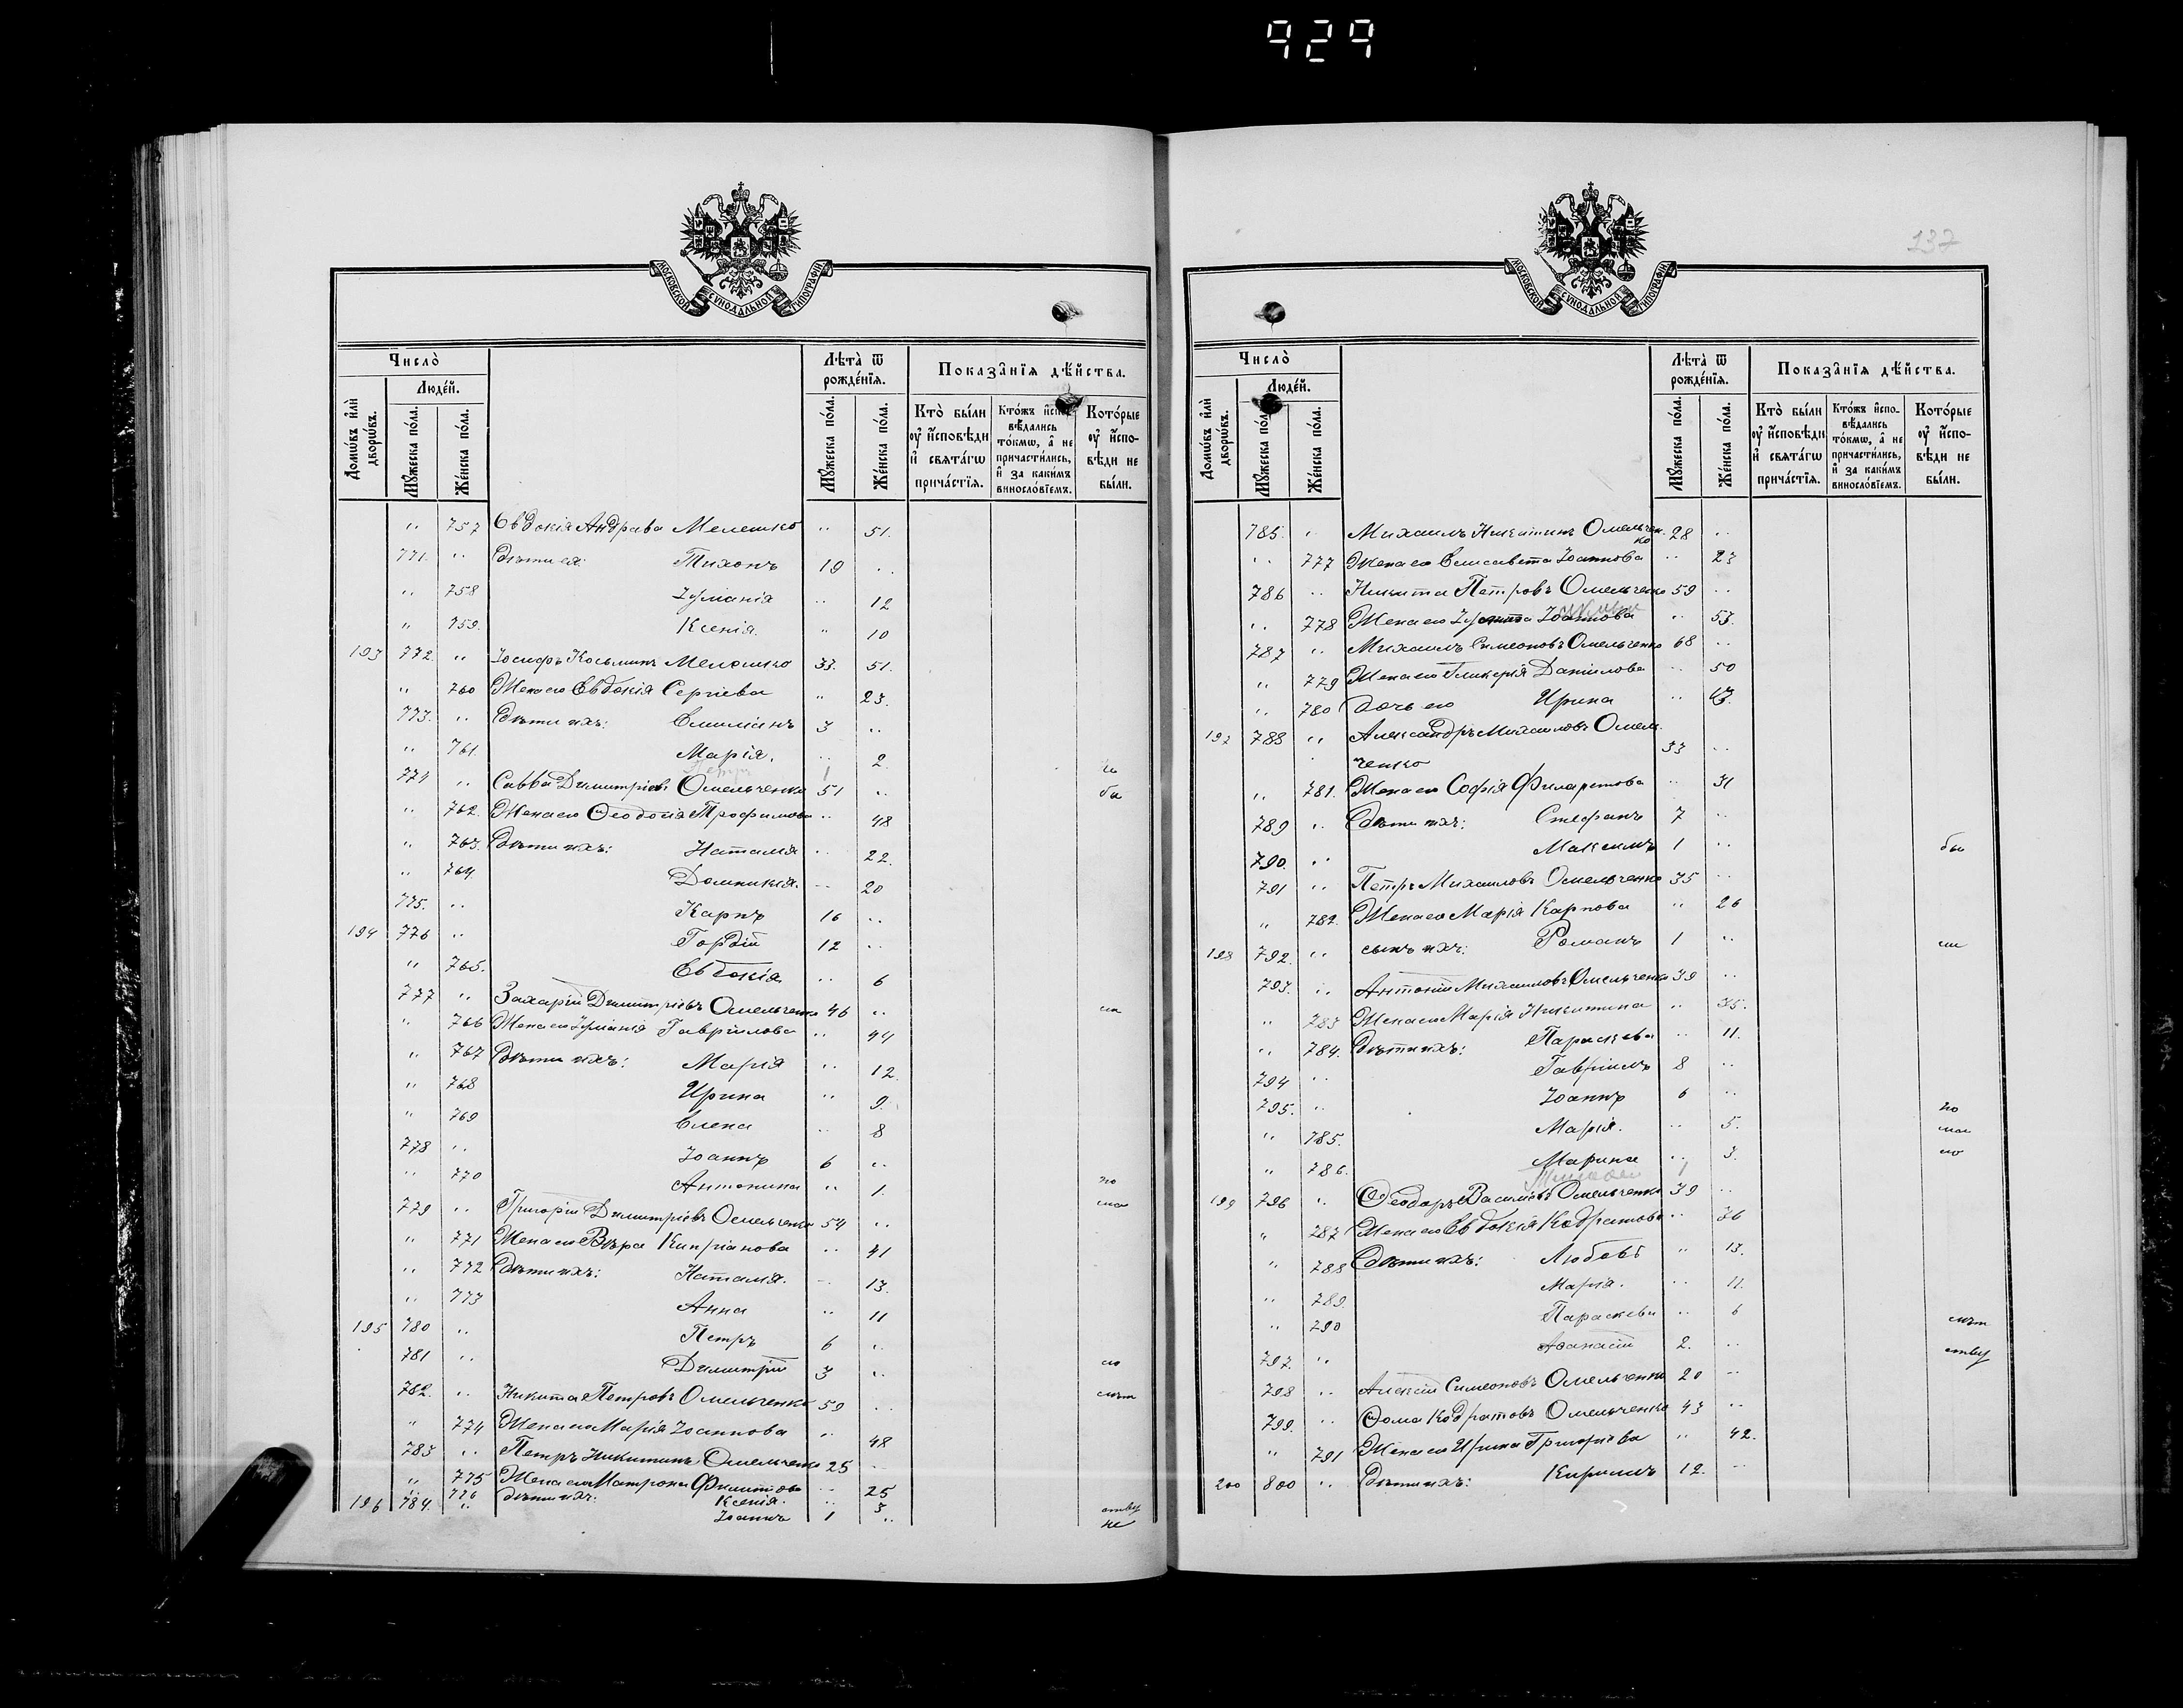 929
МОСКОВСКОЙ СѴНОДАЛЬНОЙ ТИПОГРАФІИ
Число̀
Людéй.
Домѡ́въ и҆лѝ дворѡ́въ.
Мꙋ́жеска по́ла.
Же́нска по́ла.
Лѣта̀ ѿ рожде́нїѧ.
Мꙋ́жеска по́ла.
Же́нска по́ла.
Показа̑нїѧ дѣ́йства.
Кто̀ бы́ли ᲂу҆ и҆́сповѣди и҆ свѧта́гѡ прича́стїѧ.
Кто́жъ и҆спо- вѣ́дались то́кмѡ, а҆ не причасти́лись, и҆ за каки́мъ винословїемъ.
Кото́рые ᲂу҆ и҆́спо- вѣди не бы́ли.
" 757 Евдокія Андреева Мелешко " 51.
771. " Дѣти ея: Тихонъ 19 "
" 758 Іуліанія " 12
" 759. Ксенія. " 10
193 772. " Іосифъ Косьминъ Мелешко 33. 51.
" 760 Жена его Евдокія Сергіева " 23.
773. " Дѣти ихъ: Емиліанъ 3 "
" 761. Марія. " 2.
Петръ 1
774 " Савва Димитріевъ Омельченко 51 " бы
" 762. Жена его Ѳеодосія Трофимова " 48
" 763. Дѣти ихъ: Наталія " 22.
" 764. Домникія. " 20
775. " Карпъ 16 "
194 776 " Гордій 12 "
" 765. Евдокія " 6
777 " Захарій Димитріевъ Омельченко 46 " ли
" 766 Жена его Іуліанія Гавріилова " 44
" 767 Дѣти ихъ: Марія " 12.
" 768 Ирина " 9.
" 769 Елена " 8
778 " Іоаннъ 6 "
" 770 Антонина " 1. по
779 " Григорій Димитріевъ Омельченко 54 " мал
" 771 Жена его Вѣра Кипріанова " 41
" 772 Дѣти ихъ: Наталія. " 13.
" 773 Анна " 11
195 780 " Петръ 6 "
781 " Димитрій 3 " ло
782. " Никита Петровъ Омельченко 59 " лѣт
" 774 Жена его Марія Іоаннова " 48
783 " Петръ Никитинъ Омельченко 25 "
" 775 Жена его Матрона Филиппова " 25
" 776 Дѣти ихъ: Ксенія. " 3 ству
196 784. " Іоаннъ 1 " не
137
МОСКОВСКОЙ СѴНОДАЛЬНОЙ ТИПОГРАФІИ
Число̀
Людéй.
Домѡ́въ и҆лѝ дворѡ́въ.
Мꙋ́жеска по́ла.
Же́нска по́ла.
Лѣта̀ ѿ рожде́нїѧ.
Мꙋ́жеска по́ла.
Же́нска по́ла.
Показа̑нїѧ дѣ́йства.
Кто̀ бы́ли ᲂу҆ и҆́сповѣди и҆ свѧта́гѡ прича́стїѧ.
Кто́жъ и҆спо- вѣ́дались то́кмѡ, а҆ не причасти́лись, и҆ за каки́мъ винословїемъ.
Кото́рые ᲂу҆ и҆́спо- вѣди не бы́ли.
785. " Михаилъ Никитинъ Омельчен- 28 "
ко
" 777 Жена его Елисавета Іоаннова " 23
786 " Никита Петровъ Омельченко 59 "
" 778 Жена его Іоаннова " 53.
787 " Михаилъ Симеоновъ Омельченко 68 "
" 779 Жена его Гликерія Даніилова " 50
" 780 дочь его Ирина "
197 788 " Александръ Михаиловъ Омель
ченко 33 "
" 781. Жена его Софія Филаретова " 31
789 " Дѣти ихъ: Стефанъ 7 "
790. " Максимъ 1 " бы
791 " Петръ Михаиловъ Омельченко 35 "
" 782. Жена его Марія Карпова " 26
198 792. " сынъ ихъ: Романъ 1 " ли
793. " Антоній Михаиловъ Омельченко 39 "
" 783 Жена его Марія Никитина " 35.
" 784. Дѣти ихъ: Параскева " 11.
794 " Гавріилъ 8 "
795. " Іоаннъ 6 " по
" 785. Марія. " 5. мал
" 786. Марина " 3. ло
199 796 " Ѳеодоръ Васильевъ Омельченко 39 "
" 787 Жена его Евдокія Кодратова " 36
" 788 Дѣти ихъ: Любовь " 13.
" 789. Марія. " 11.
" 790 Параскева " 6 лѣт
797. " Аѳанасій 2. " ству
798 " Алексій Симеоновъ Омельченко 20 "
799. " Ѳома Кодратовъ Омельченко 43 "
" 791 Жена его Ирина Григоріева " 42.
200 800 " Дѣти ихъ: Кириллъ 12. "